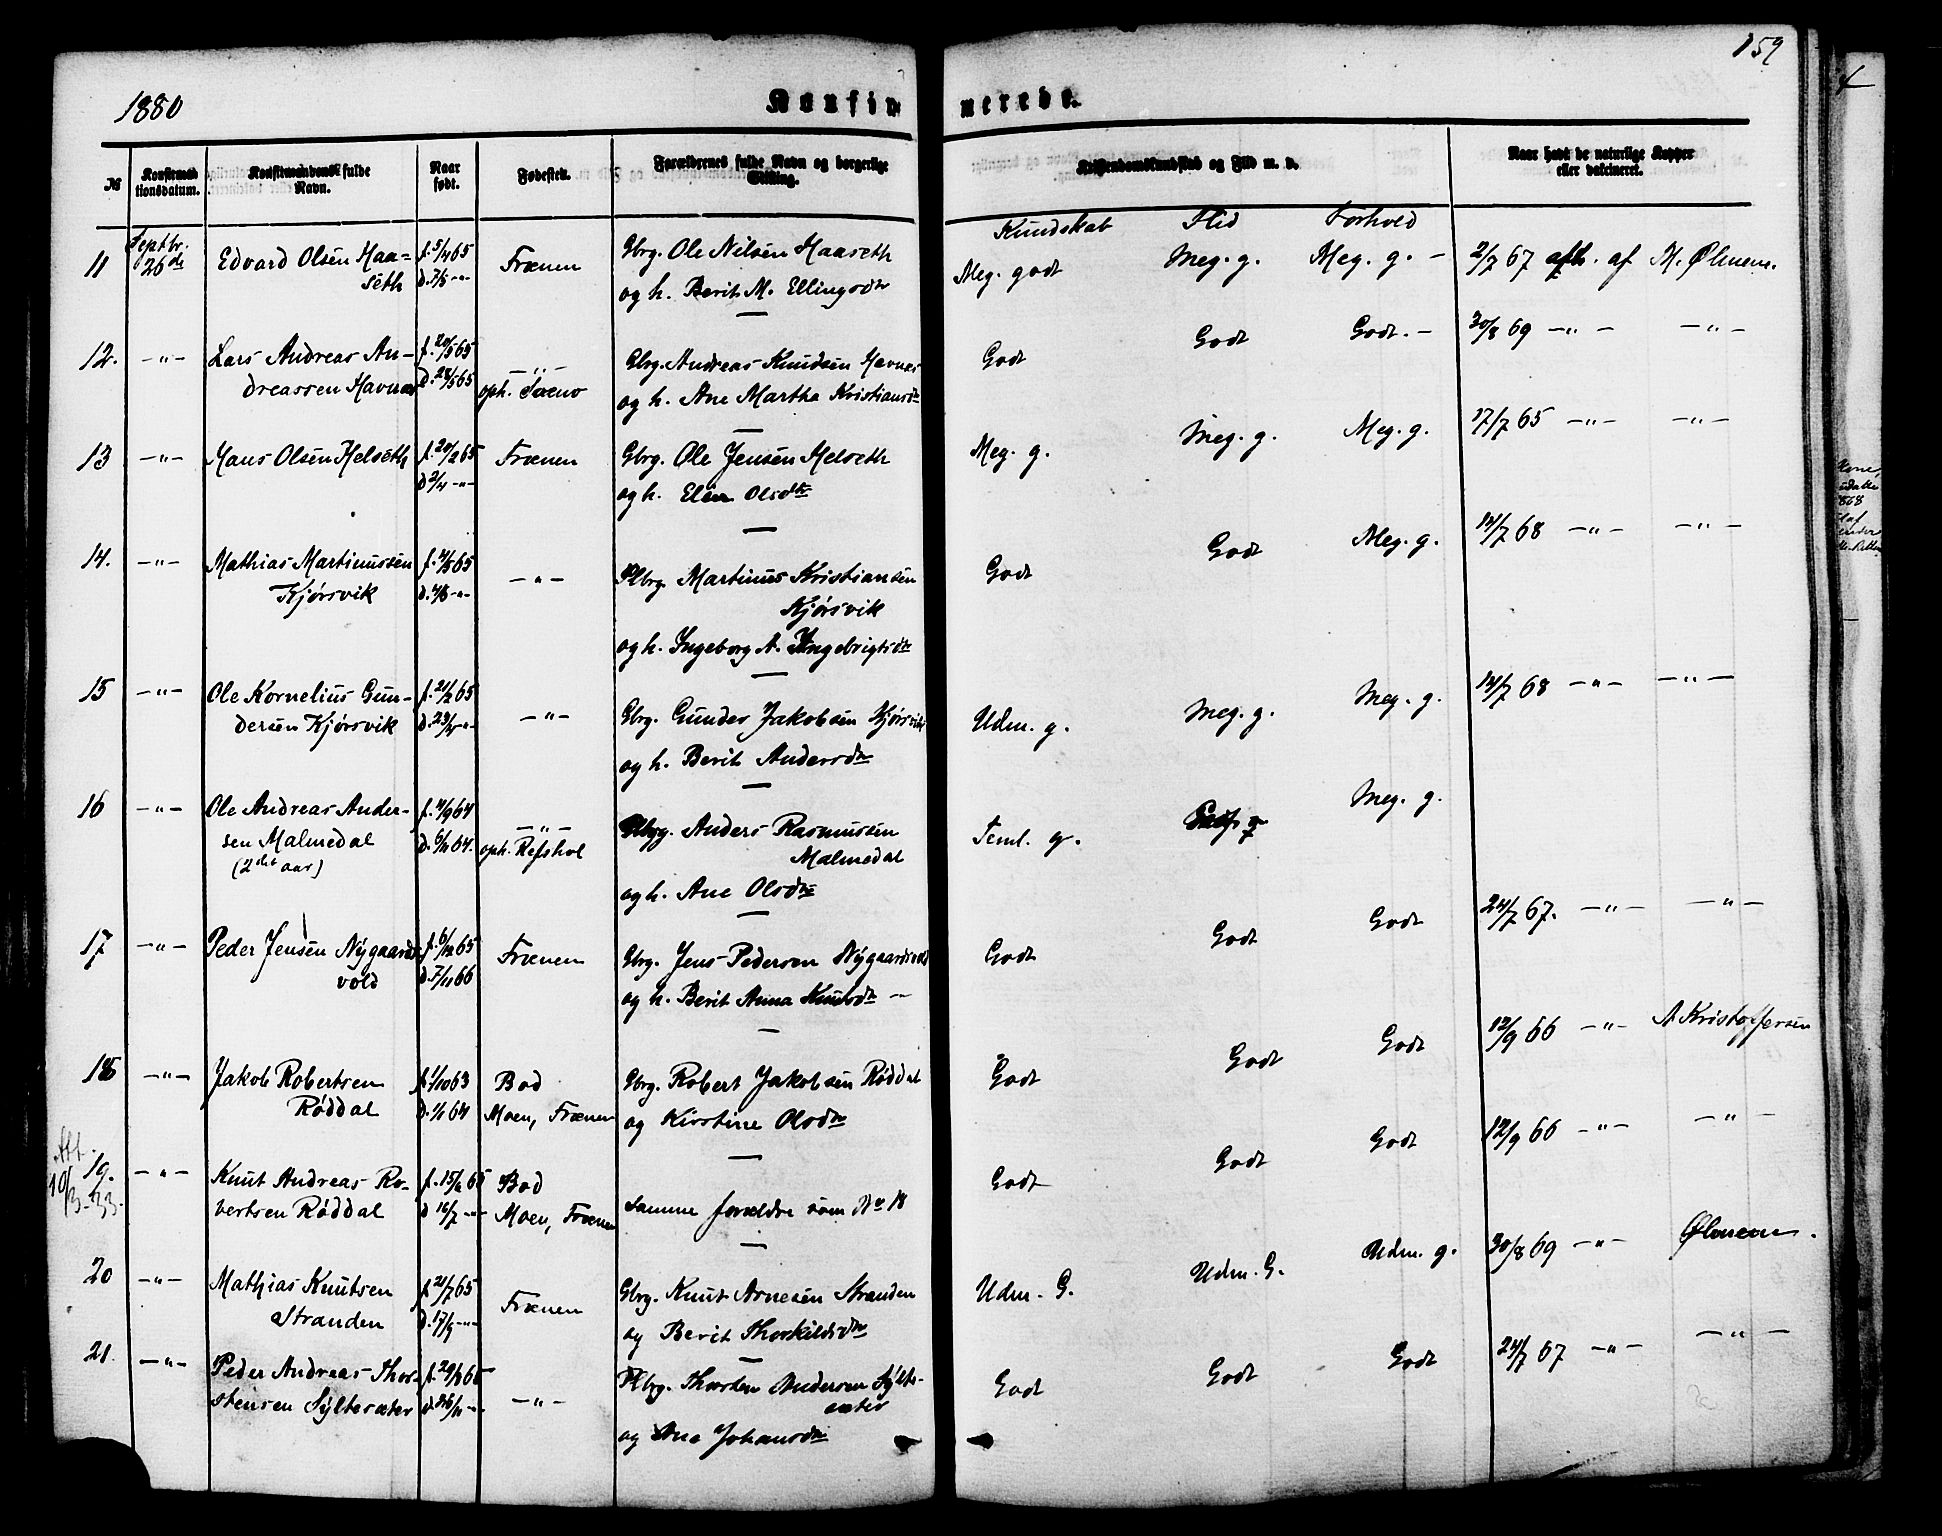 159
1880
Konfir
merede.
№
Konfirmationsdatum.
Konfirmandens fulde Navn.
Naar født.
Fødested.
Forældrenes fulde Navn og borgerlige Stilling.
Kristendomskundskab og Flid m. v.
Naar havt de naturlige Kopper eller vakcineret.
Kundskab Flid Forhold
11 Septbr. 26de Edvard Olsen Haa= f. 5/4 65 Frænen Gbrg. Ole Nilsen Haaseth Meg. godt Meg. g. Meg. g. – 2/7 67 af M. Ølmem.
seth d. 7/5 -"- og h. Berit M. Ellingsdtr
12. -"- Lars Andreas An- f. 20/5 65 -"- Gbrg. Andreas Knudsen Havnes Godt Godt Godt. – 30/8 69 -"- -"-
dreassen Havnæs d. 28/5 65 oph. og h. Ane Martha Kristiansdtr
13 -"- Hans Olsen Helseth f. 20/2 65 Frænen Gbrg. Ole Jensen Helseth Meg. g. Meg. g. Meg. g. 17/7 65 -"- -"-
d 2/4 -"- og h. Elen Olsdtr
14. -"- Mathias Martinussen f. 4/5 65 -"- Plbrg. Martinus Kristiansen Godt Godt Meg. g. 14/7 68 -"- -"-
Kjørsvik Kjørsvik
og h. Ingeborg A. Ingebrigtsdtr
15 -"- Ole Kornelius Gun- f. 21/2 65 -"- Gbrg. Gunder Jakobsen Kjørsvik Udm. g. Meg. g. Meg. g. 14/7 68 -"- -"-
dersen Kjørsvik d. 23/4 -"- og h. Berit Andersdtr
16 -"- Ole Andreas Ander- f. 4/9 64 -"- Anders Rasmussen Teml. g. Meg. g.
sen Malmedal d. 6/11 64. oph. Refshol Malmedal
(2det aar) og h. Ane Olsdtr
17 -"- Peder Jensen Nygaards f. 6/12 65 Frænen Gbrg. Jens Pedersen Nygaardsvold Godt Godt Godt 24/7 67. -"- -"-
vold d. 7/11 66 og h. Berit Anna Knudsdtr –
18 -"- Jakob Robertsen f. 1/10 63 Bod Gbrg. Robert Jakobsen Røddal Godt Godt Godt 12/9 66 -"- A Kristoffersen
Røddal d. 1/1 64 Moen, Frænen og Kirstine Olsdtr
Att.
10/3-33.
19. -"- Knut Andreas Ro- Bod Samme forældre som No 18 Godt Godt Godt 12/9 66 -"- -"-
bertsen Røddal d 16/7 -"- Moen, Frænen
20 -"- Mathias Knutsen f. 21/7 65 Frænen Gbrg. Knut Arnesen Stranden Udm. G. Udm. G. Udm. g. 30/8 69 -"- Ølmem.
Stranden d. 17/9 -"- og Berit Thorkildsdtr
21. -"- Peder Andreas Thor- f. 29/8 65 -"- Plbrg. Thorsten Andersen Sylte- Godt Godt Godt 24/7 67 -"- -"-
stensen Syltesæter sæter
og Ane Johansdtr